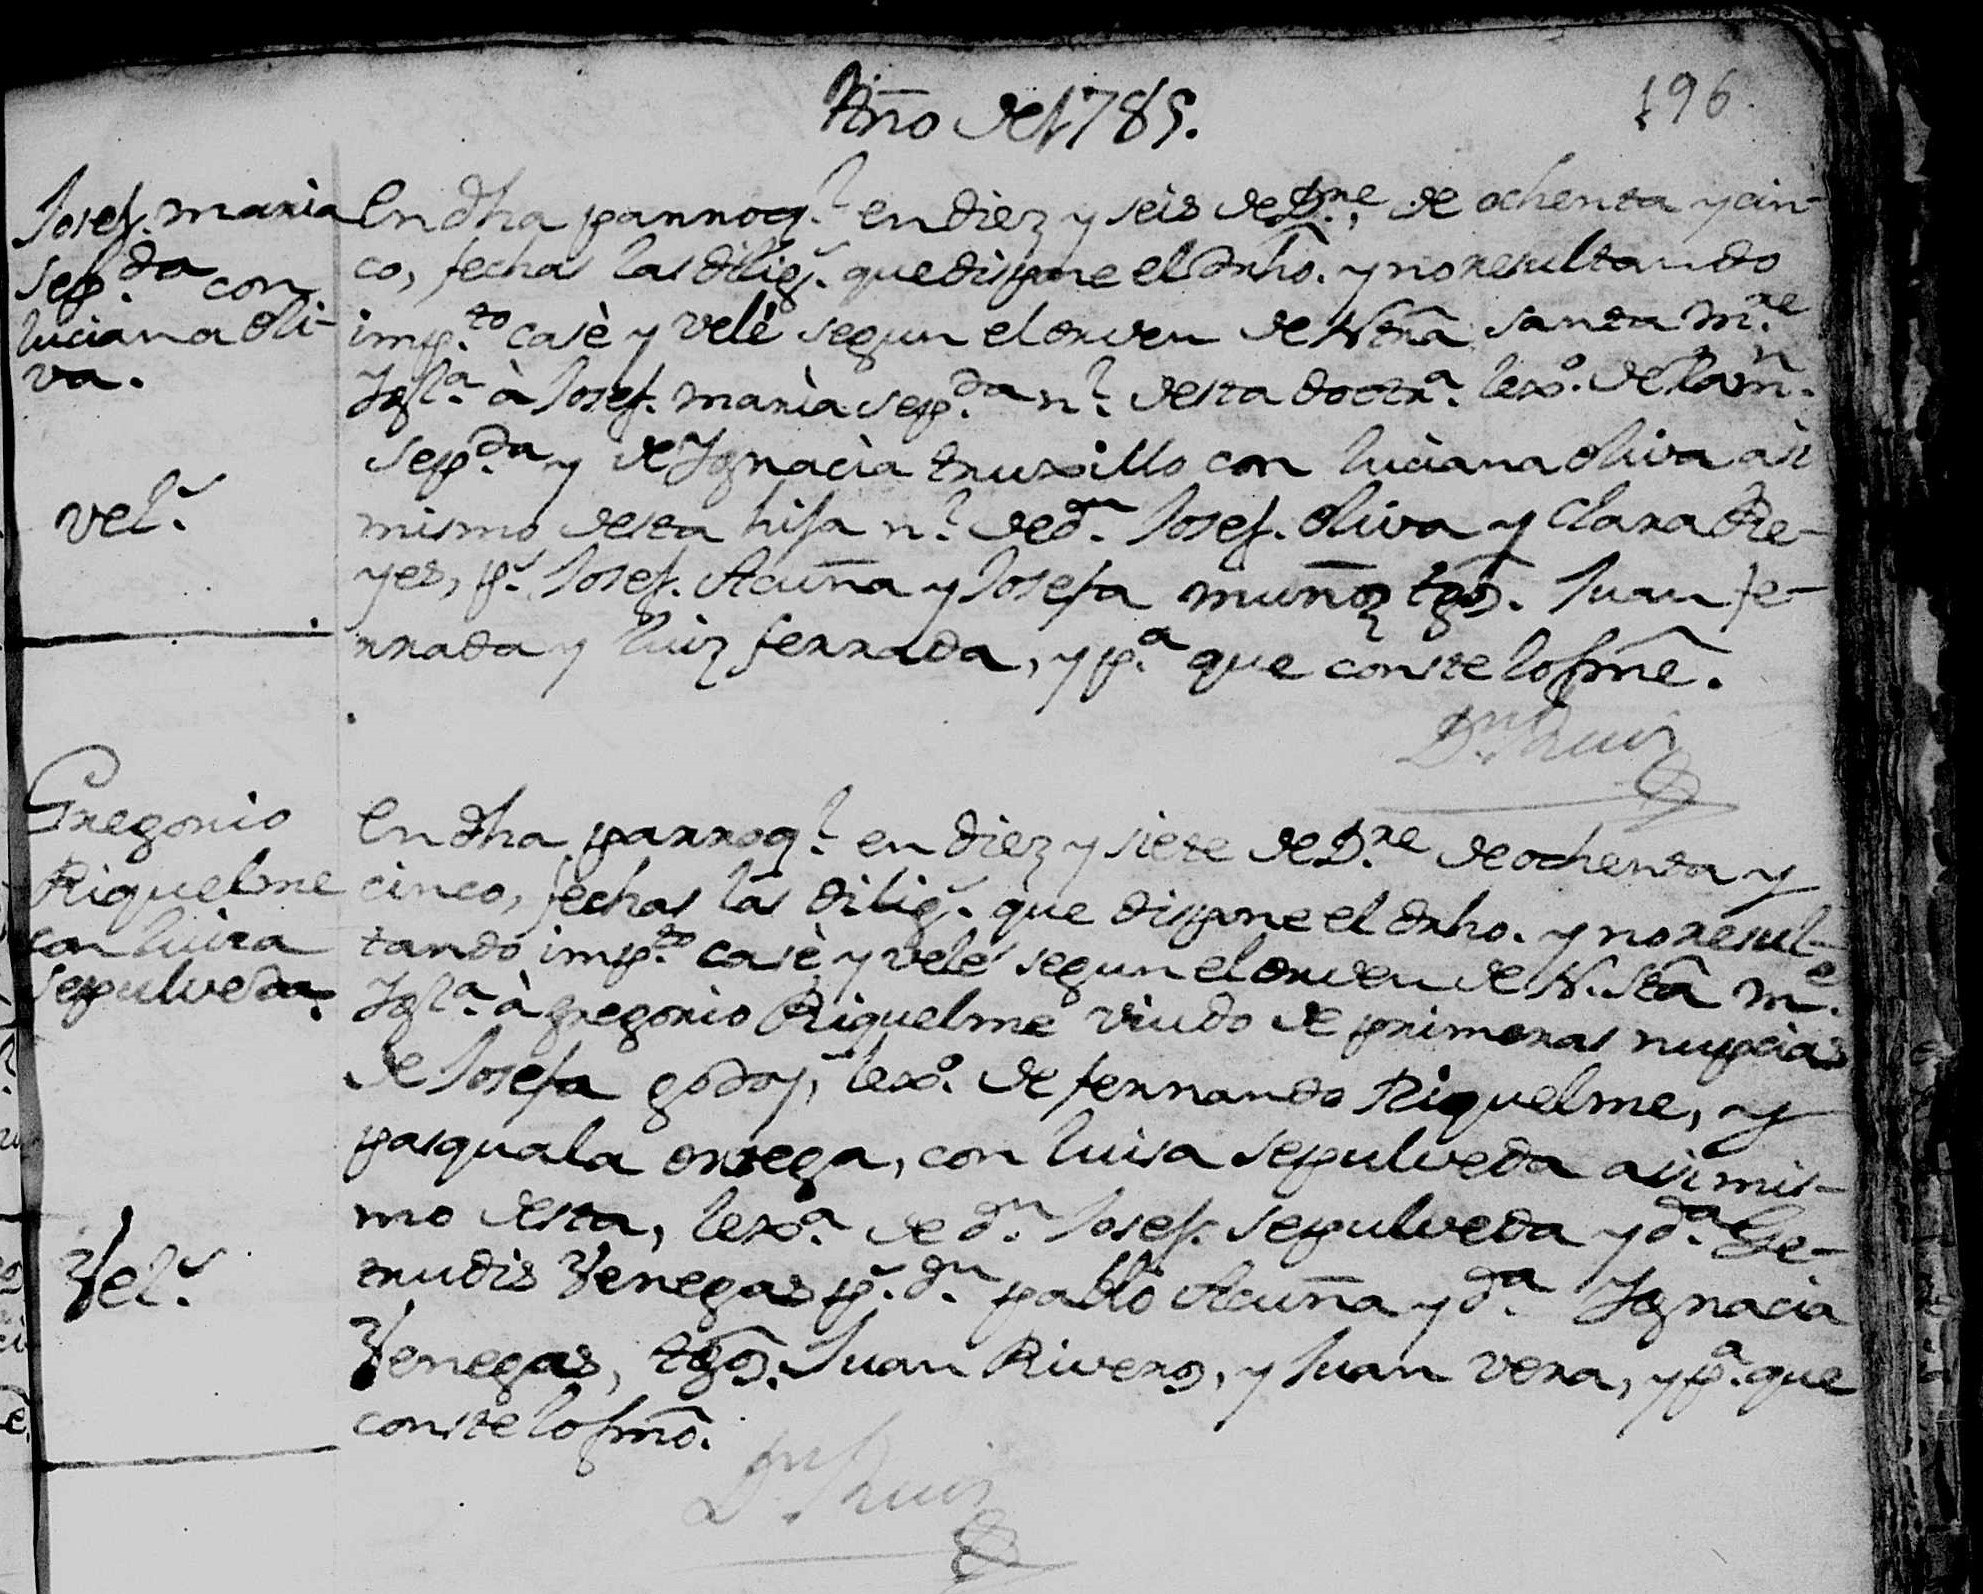 Año de 1785.
196
Josef. maria
sep.da con
luciana Oli-
va.
vel.s
En dha parroq.l en diez y seis de D.re, de ochenta y cin-
co, fechas las dilig.s que dispone el drho. y no resultando
imp.to casè y velé segun el orden de Ntra Santa M.re
Igl.a à Josef. maria sep.da n.l desta doctr.a lexo. de Ram.n
sep.da y de Ignacia truxillo con luciana Oliva asi
mismo desta hija n.l de d.n Josef. Oliva y Clara Re-
yes, p.s Josef. Acuña y Josefa muñoz tgos. Juan fe-
rrada y luiz ferrada, y p.a que conste lo fmé.
D.n Ruiz
Gregorio
Riquelme
con luisa
sepulveda.
Vel.s
En dha parroq.l en diez y siete de D.re de ochenta y
cinco, fechas las dilig.s que dispone el drho. y no resul-
tando imp.to casè y velé segun el orden de N. Sta M.e
Igl.a à gregorio Riquelme viudo de primeras nupcias
de Josefa godoy, lexo. de fernando Riquelme, y
pasquala ortega, con luisa sepulveda asimis-
mo desta, lex.a de d.n Josef. sepulveda y d.a Ge-
trudis Venegas p.s d.n pablo Acuña y d.a Ignacia
Venegas, tgos. Juan Riveros, y Juan vera, y p.a que
conste lo fmo.
D.n Ruiz